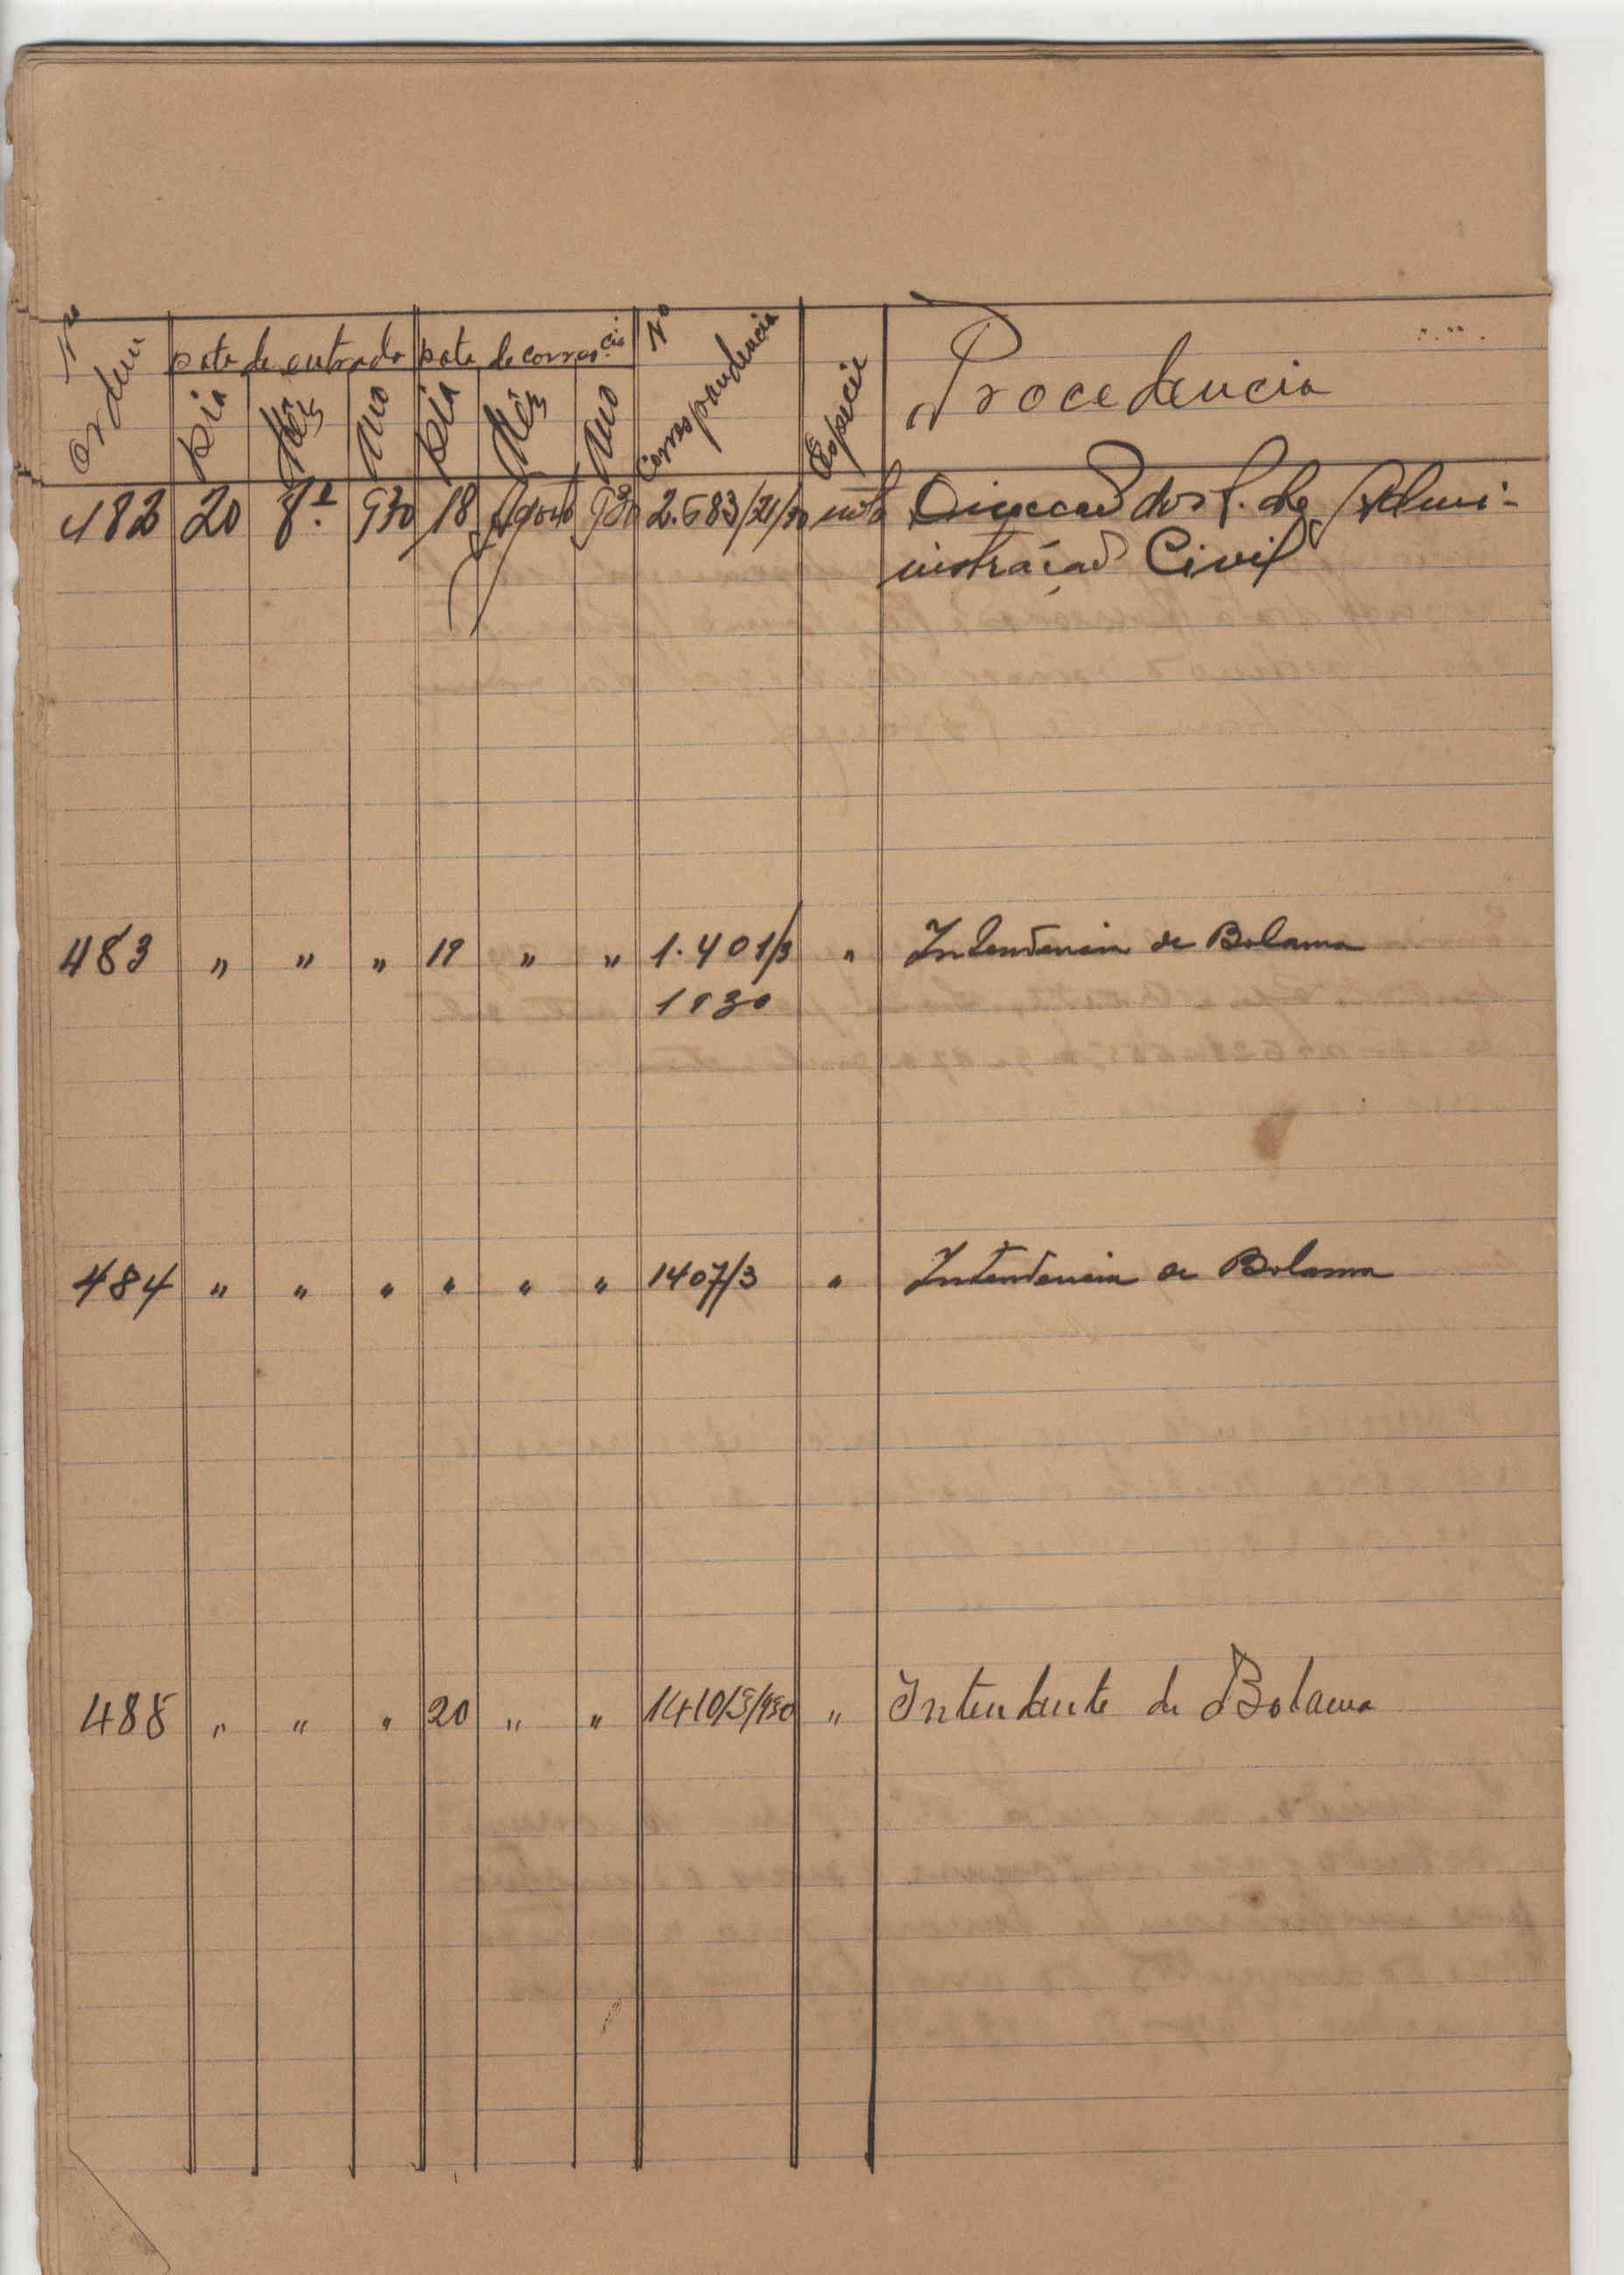 Nº Ordem | Data de entrada | Data de corres.cia | Nº Correspondencia | Especie | Procedencia
Dia | Mês | Ano | Dia | Mês | Ano
482 20 8º 930 18 Agosto 930 2.583/21/30 nota Direcção dos S. de Admi-
nistração Civil
483 " " " 19 " " 1.401/3 " Intendencia de Bolama
1930
484 " " " " " " 1407/3 " Intendencia de Bolama
485 " " " 20 " " 1410/3/930 " Intendente de Bolama